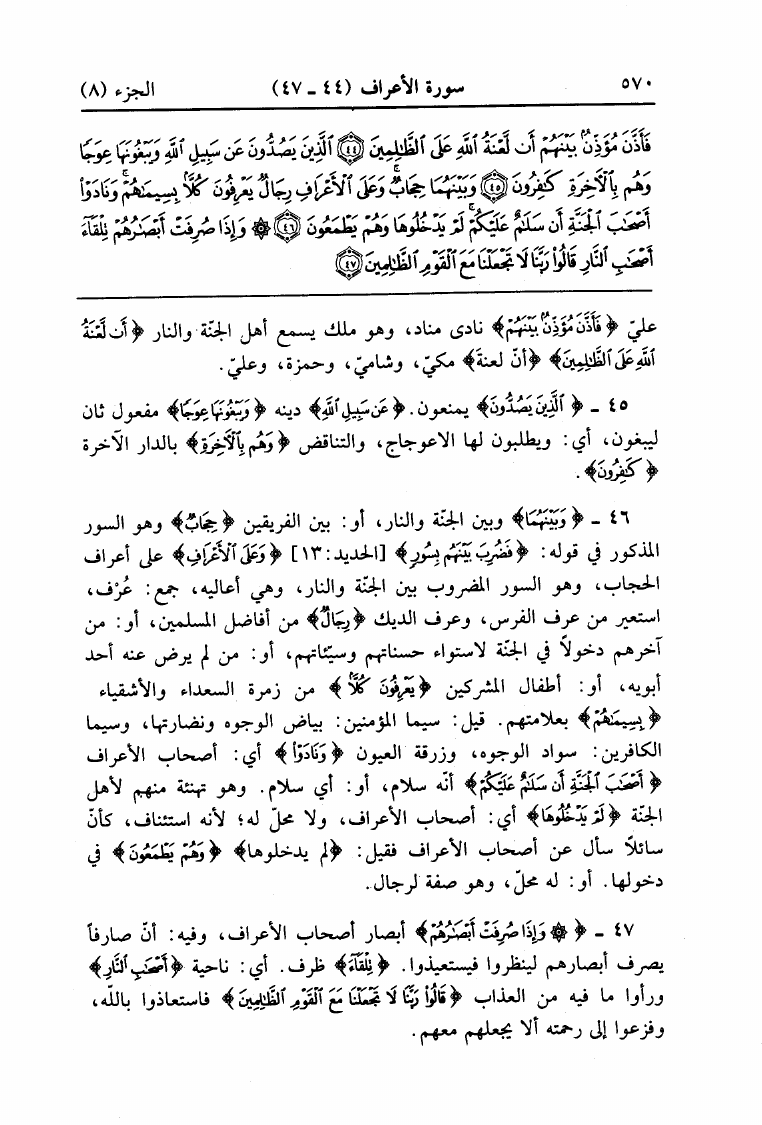 ٥٧٠ سورة الأعراف (٤٤ ـ ٤٧) الجزء (٨)
فَأَذَّنَ مُؤَذِّنٌۢ بَيْنَهُمْ أَن لَّعْنَةُ ٱللَّهِ عَلَى ٱلظَّٰلِمِينَ ٤٤ ٱلَّذِينَ يَصُدُّونَ عَن سَبِيلِ ٱللَّهِ وَيَبْغُونَهَا عِوَجًا
وَهُم بِٱلْأَخِرَةِ كَٰفِرُونَ ٤٥ وَبَيْنَهُمَا حِجَابٌ ۚ وَعَلَى ٱلْأَعْرَافِ رِجَالٌ يَعْرِفُونَ كُلًّۢا بِسِيمَىٰهُمْ ۚ وَنَادَوْا۟
أَصْحَٰبَ ٱلْجَنَّةِ أَن سَلَٰمٌ عَلَيْكُمْ ۚ لَمْ يَدْخُلُوهَا وَهُمْ يَطْمَعُونَ ٤٦ ۞ وَإِذَا صُرِفَتْ أَبْصَٰرُهُمْ تِلْقَآءَ
أَصْحَٰبِ ٱلنَّارِ قَالُوا۟ رَبَّنَا لَا تَجْعَلْنَا مَعَ ٱلْقَوْمِ ٱلظَّٰلِمِينَ ٤٧
عليّ ﴿فَأَذَّنَ مُؤَذِّنٌۢ بَيْنَهُمْ﴾ نادى مناد، وهو ملك يسمع أهل الجنّة والنار ﴿أَن لَّعْنَةُ
ٱللَّهِ عَلَى ٱلظَّٰلِمِينَ﴾ ﴿أنّ لعنةَ﴾ مكيّ، وشاميّ، وحمزة، وعليّ.
٤٥ ـ ﴿ٱلَّذِينَ يَصُدُّونَ﴾ يمنعون. ﴿عَن سَبِيلِ ٱللَّهِ﴾ دينه ﴿وَيَبْغُونَهَا عِوَجًا﴾ مفعول ثان
ليبغون، أي: ويطلبون لها الاعوجاج، والتناقض ﴿وَهُم بِٱلْأَخِرَةِ﴾ بالدار الآخرة
﴿كَٰفِرُونَ﴾.
٤٦ ـ ﴿وَبَيْنَهُمَا﴾ وبين الجنّة والنار، أو: بين الفريقين ﴿حِجَابٌ﴾ وهو السور
المذكور في قوله: ﴿فَضُرِبَ بَيْنَهُم بِسُورٍ﴾ [الحديد: ١٣] ﴿وَعَلَى ٱلْأَعْرَافِ﴾ على أعراف
الحجاب، وهو السور المضروب بين الجنّة والنار، وهي أعاليه، جمع: عُرْف،
استعير من عرف الفرس، وعرف الديك ﴿رِجَالٌ﴾ من أفاضل المسلمين، أو: من
آخرهم دخولاً في الجنّة لاستواء حسناتهم وسيّئاتهم، أو: من لم يرض عنه أحد
أبويه، أو: أطفال المشركين ﴿يَعْرِفُونَ كُلًّۢا﴾ من زمرة السعداء والأشقياء
﴿بِسِيمَىٰهُمْ﴾ بعلامتهم. قيل: سيما المؤمنين: بياض الوجوه ونضارتها، وسيما
الكافرين: سواد الوجوه، وزرقة العيون ﴿وَنَادَوْا۟﴾ أي: أصحاب الأعراف
﴿أَصْحَٰبَ ٱلْجَنَّةِ أَن سَلَٰمٌ عَلَيْكُمْ﴾ أنّه سلام، أو: أي سلام. وهو تهنئة منهم لأهل
الجنّة ﴿لَمْ يَدْخُلُوهَا﴾ أي: أصحاب الأعراف، ولا محلّ له؛ لأنه استئناف، كأنّ
سائلاً سأل عن أصحاب الأعراف فقيل: ﴿لم يدخلوها﴾ ﴿وَهُمْ يَطْمَعُونَ﴾ في
دخولها. أو: له محلّ، وهو صفة لرجال.
٤٧ ـ ﴿۞ وَإِذَا صُرِفَتْ أَبْصَٰرُهُمْ﴾ أبصار أصحاب الأعراف، وفيه: أنّ صارفاً
يصرف أبصارهم لينظروا فيستعيذوا. ﴿تِلْقَآءَ﴾ ظرف. أي: ناحية ﴿أَصْحَٰبِ ٱلنَّارِ﴾
ورأوا ما فيه من العذاب ﴿قَالُوا۟ رَبَّنَا لَا تَجْعَلْنَا مَعَ ٱلْقَوْمِ ٱلظَّٰلِمِينَ﴾ فاستعاذوا باللّه،
وفزعوا إلى رحمته ألا يجعلهم معهم.